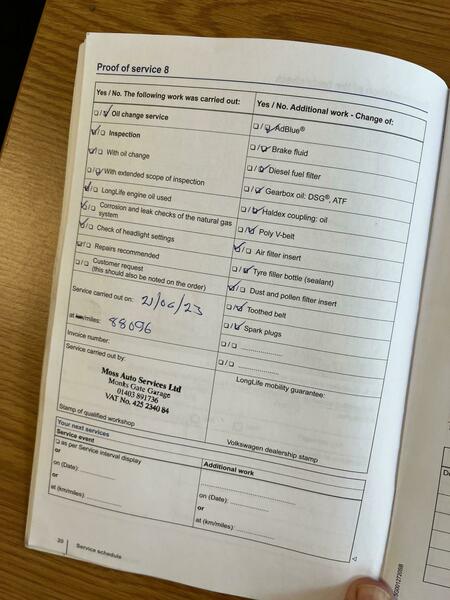 Proof of service 8
Yes / No. The following work was carried out:
❑ / ❑ Oil change service
❑ / ❑ Inspection
❑ / ❑ With oil change
❑ / ❑ With extended scope of inspection
❑ / ❑ LongLife engine oil used
❑ / ❑ Corrosion and leak checks of the natural gas
system
❑ / ❑ Check of headlight settings
❑ / ❑ Repairs recommended
❑ / ❑ Customer request
(this should also be noted on the order)
Service carried out on: 21/06/23
at km/miles: 88096
Invoice number:
Service carried out by:
Moss Auto Services Ltd
Monks Gate Garage
01403 891736
VAT No. 425 2340 84
Stamp of qualified workshop
Yes / No. Additional work - Change of:
❑ / ❑ AdBlue®
❑ / ❑ Brake fluid
❑ / ❑ Diesel fuel filter
❑ / ❑ Gearbox oil: DSG®, ATF
❑ / ❑ Haldex coupling: oil
❑ / ❑ Poly V-belt
❑ / ❑ Air filter insert
❑ / ❑ Tyre filler bottle (sealant)
❑ / ❑ Dust and pollen filter insert
❑ / ❑ Toothed belt
❑ / ❑ Spark plugs
❑ / ❑ ....................
❑ / ❑ ....................
LongLife mobility guarantee:
Volkswagen dealership stamp
Your next services
Service event
❑ as per Service interval display
or
on (Date): ....................
or
at (km/miles): ..............
Additional work
....................
on (Date): ..............
or
at (km/miles): ..............
20 Service schedule